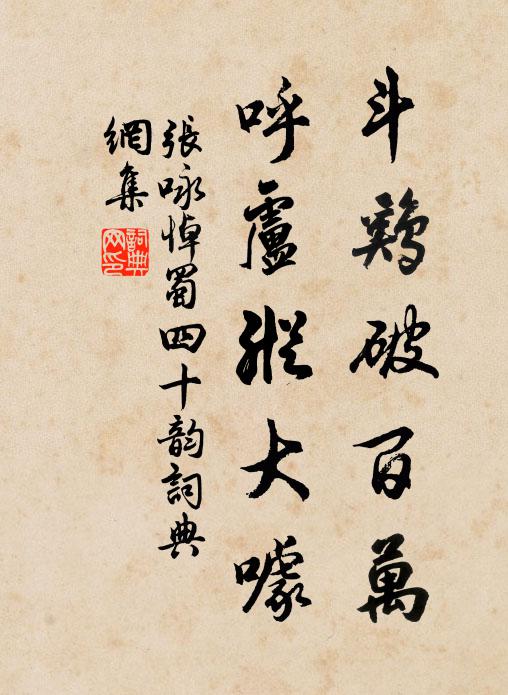 斗鷄破百萬
呼盧縱大噱
張咏悼蜀四十韵詞典
網集
詞典
网印